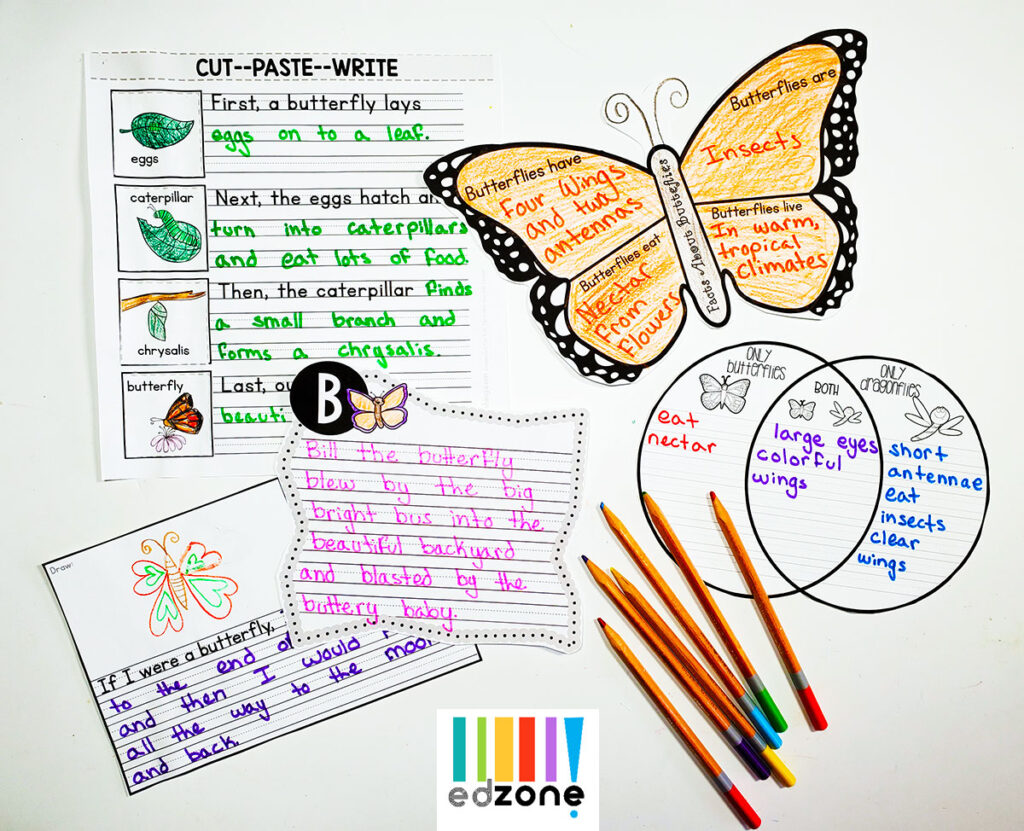 CUT--PASTE--WRITE
eggs
First, a butterfly lays
eggs on to a leaf.
caterpillar
Next, the eggs hatch an
turn into caterpillars
and eat lots of food.
chrysalis
Then, the caterpillar finds
a small branch and
forms a chrysalis.
butterfly
Last, ou
beauti
Butterflies have
Four Wings
and two
antennas
Butterflies are
Insects
Butterflies eat
Nectar
from
flowers
Butterflies live
In warm,
tropical
climates
Facts About Butterflies
ONLY
butterflies
eat
nectar
BOTH
large eyes
colorful
wings
ONLY
dragonflies
short
antennae
eat
insects
clear
wings
B
Bill the butterfly
blew by the big
bright bus into the
beautiful backyard
and blasted by the
buttery baby.
Draw:
If I were a butterfly,
to the end of
and then I would
all the way to the moon
and back.
edzone